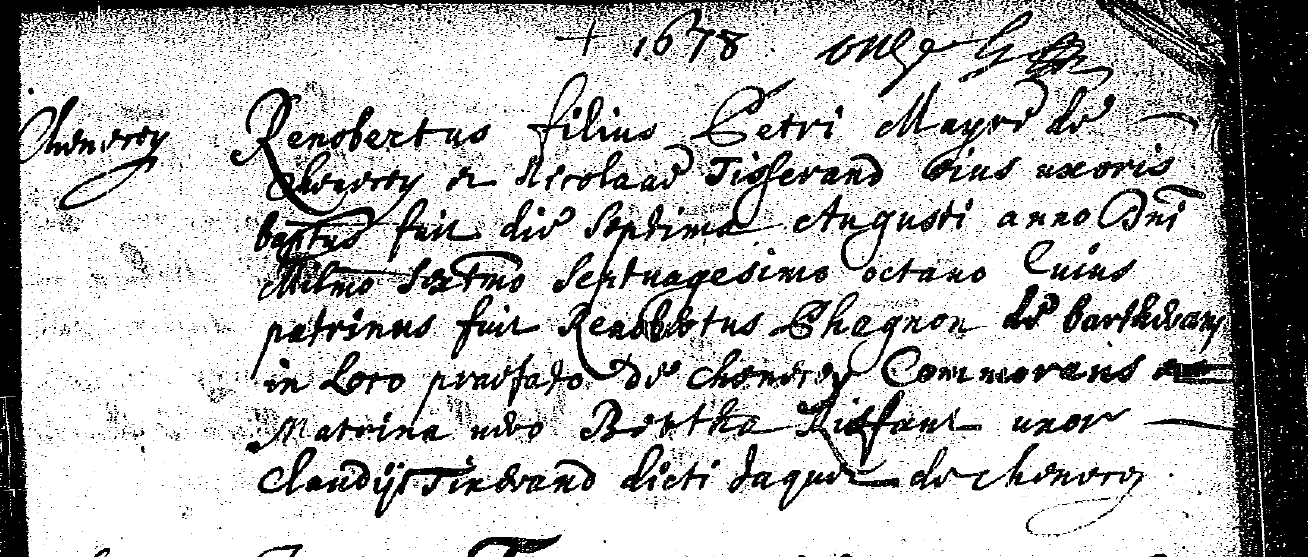 + 1678
Chenecey
Renobertus filius Petri Mayre de
Chenecey et Nicolaae Tisserand eius uxoris
baptus fuit die septima Augusti anno Dni
Millmo sextmo septuagesimo octavo Cuius
patrinus fuit Renobertus Chagnon de
in Loco praefato de chenecey Commorans
Matrina vero Bertha uxor
Claudij Tisserand dicti Jaques de chenecey